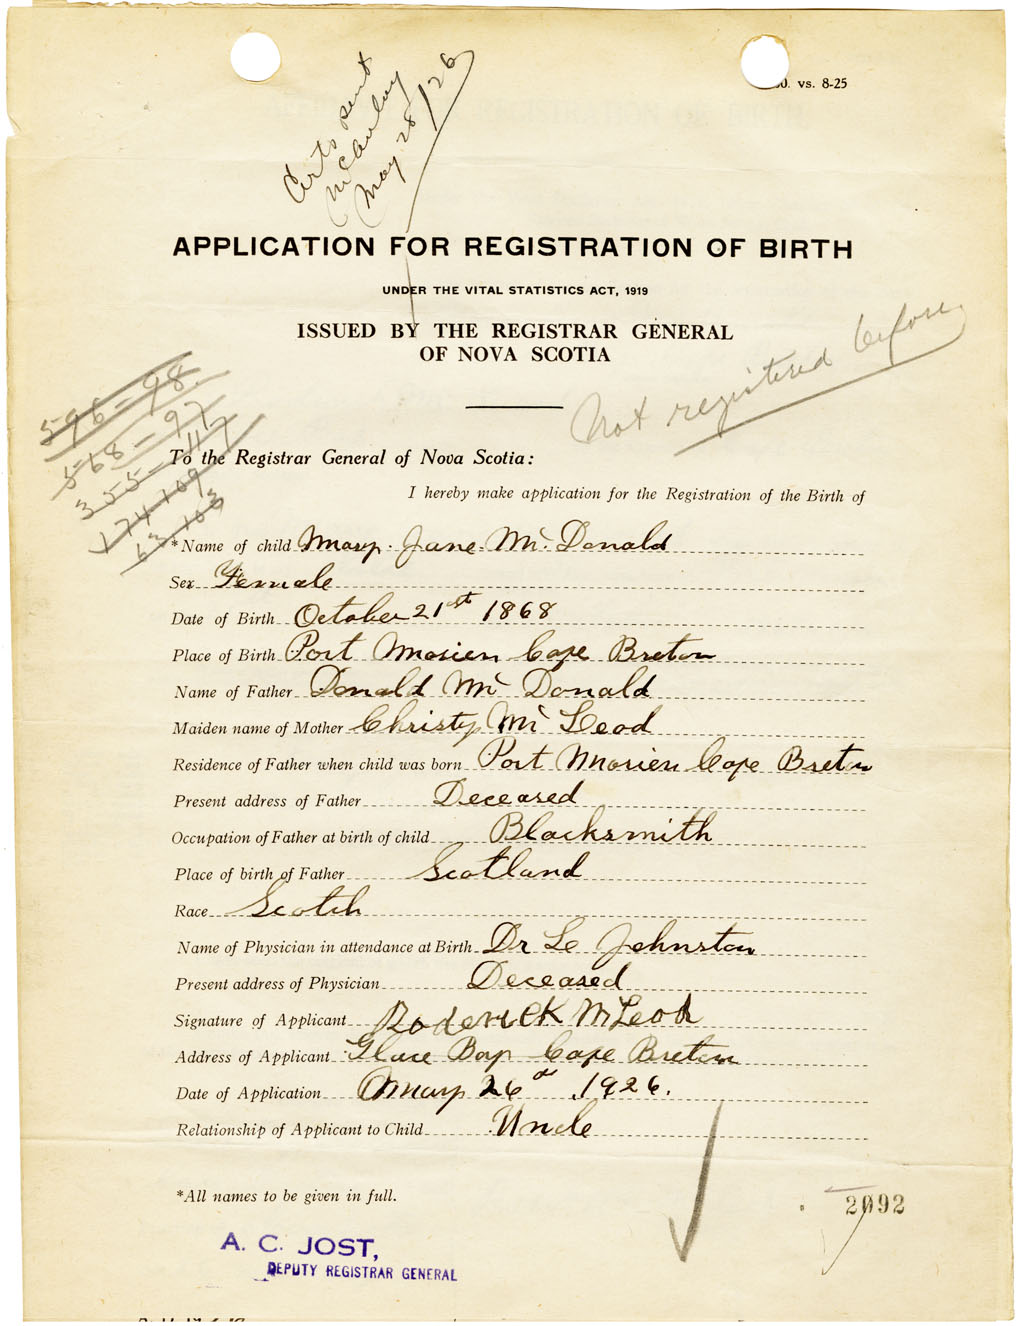 Certs sent
McAulay
May 28/26
0. vs. 8-25
APPLICATION FOR REGISTRATION OF BIRTH
UNDER THE VITAL STATISTICS ACT, 1919
ISSUED BY THE REGISTRAR GENERAL
OF NOVA SCOTIA
Not registered before
596-98
568-97
355-117
174-109
63-103
To the Registrar General of Nova Scotia:
I hereby make application for the Registration of the Birth of
*Name of child Mary Jane Mc Donald
Sex Female
Date of Birth October 21st 1868
Place of Birth Port Morien Cape Breton
Name of Father Donald Mc Donald
Maiden name of Mother Christy Mc Leod
Residence of Father when child was born Port Morien Cape Breton
Present address of Father Deceased
Occupation of Father at birth of child Blacksmith
Place of birth of Father Scotland
Race Scotch
Name of Physician in attendance at Birth Dr Le Johnston
Present address of Physician Deceased
Signature of Applicant Roderick McLeod
Address of Applicant Glace Bay Cape Breton
Date of Application May 26 1926.
Relationship of Applicant to Child Uncle
*All names to be given in full.
2092
A. C. JOST,
DEPUTY REGISTRAR GENERAL